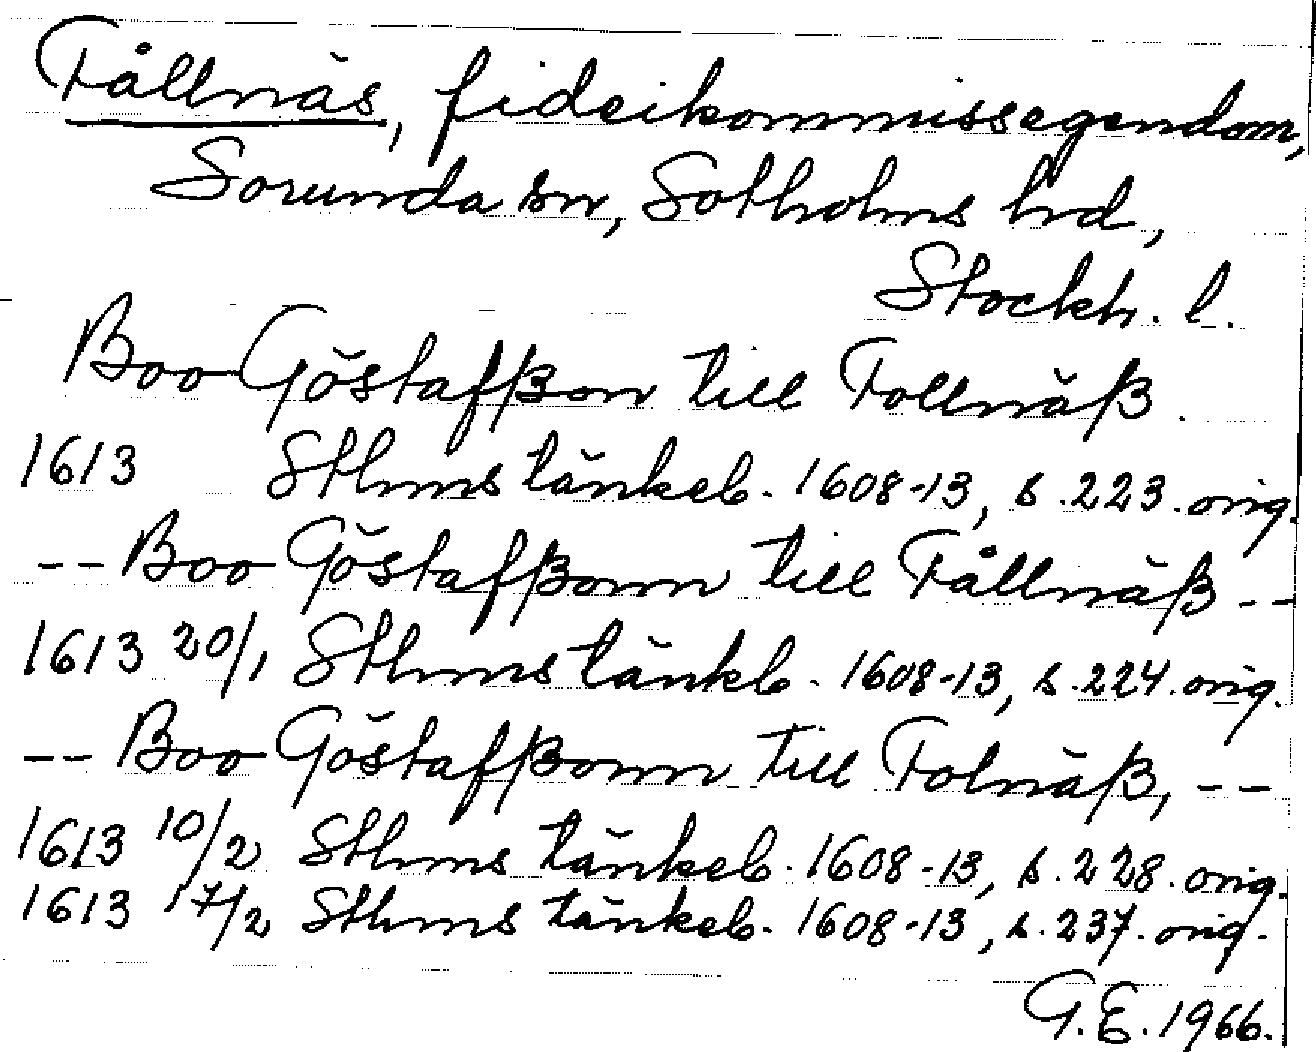 Fållnäs, fideikommissegendom,
Sorunda sn, Sotholms hrd,
Stockh. l.
Boo Göstafßon till Follnäß.
1613 Sthms tänkeb. 1608-13, s. 223. orig.
-- Boo Göstafßonn till Fållnäß --
1613 20/1 Sthms tänkb. 1608-13, s. 224. orig.
-- Boo Göstafßonn till Folnäß, --
1613 10/2 Sthms tänkeb. 1608-13, s. 228. orig.
1613 17/2 Sthms tänkeb. 1608-13, s. 237. orig.
G.E. 1966.